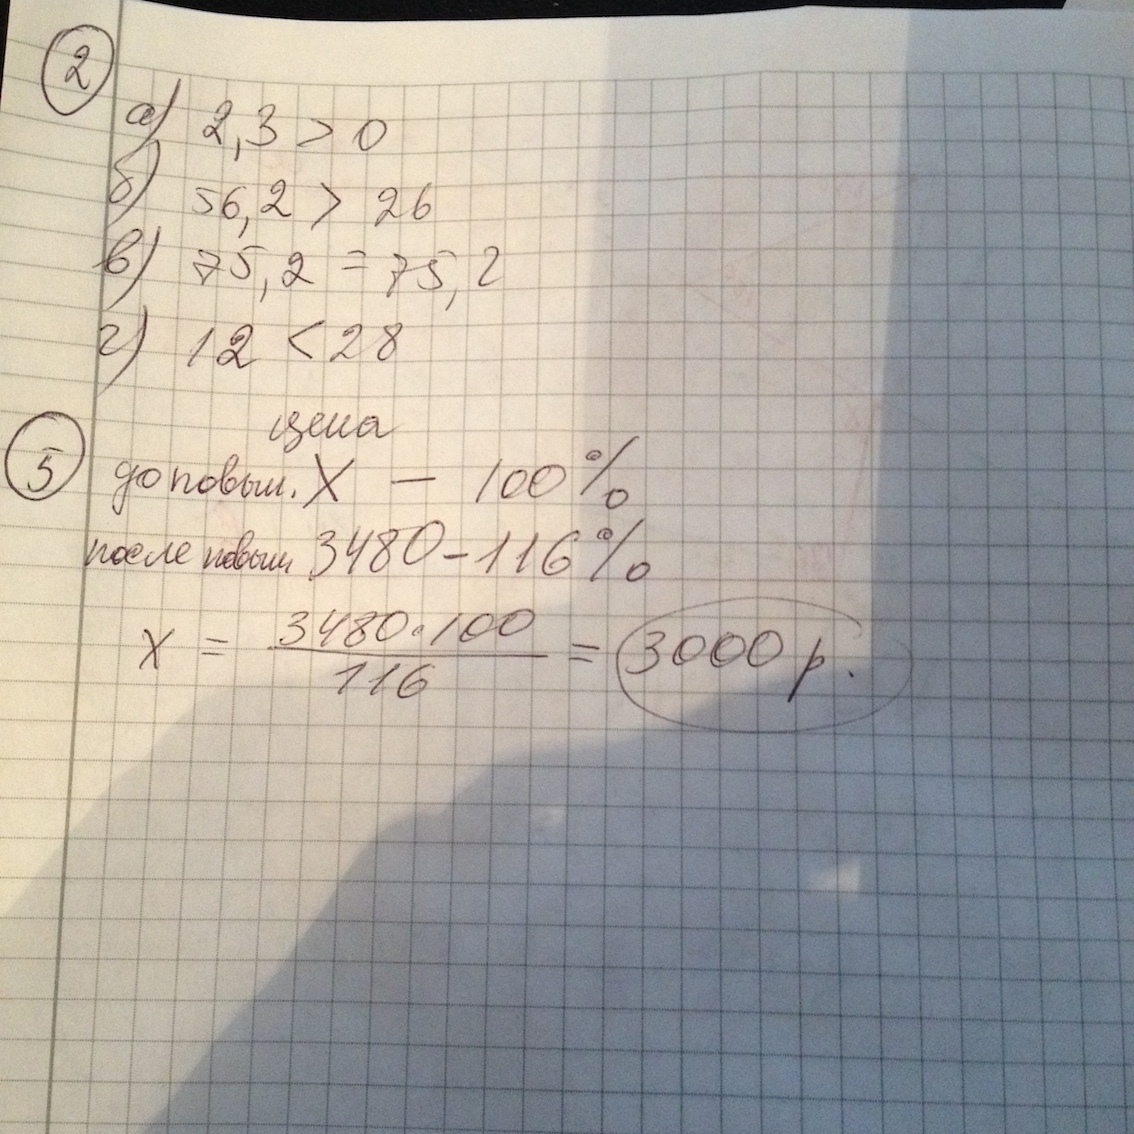 2
а) 2,3 > 0
б) 56,2 > 26
в) 75,2 = 75,2
г) 12 < 28
5
цена
до повыш. X — 100%
после повыш 3480 - 116%
X = 3480·100 / 116 = 3000 р.